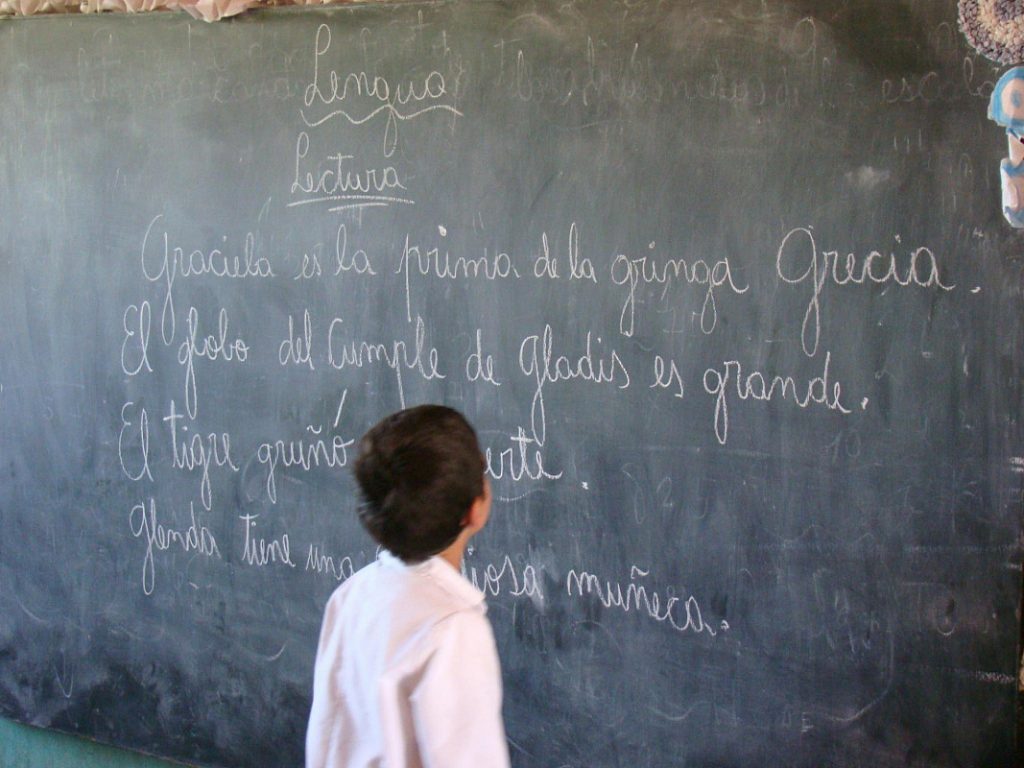 Lengua
Lectura
Graciela es la prima de la gringa Grecia.
El globo del Cumple de Gladis es grande.
El tigre gruñó erte.
Glenda tiene una iosa muñeca.